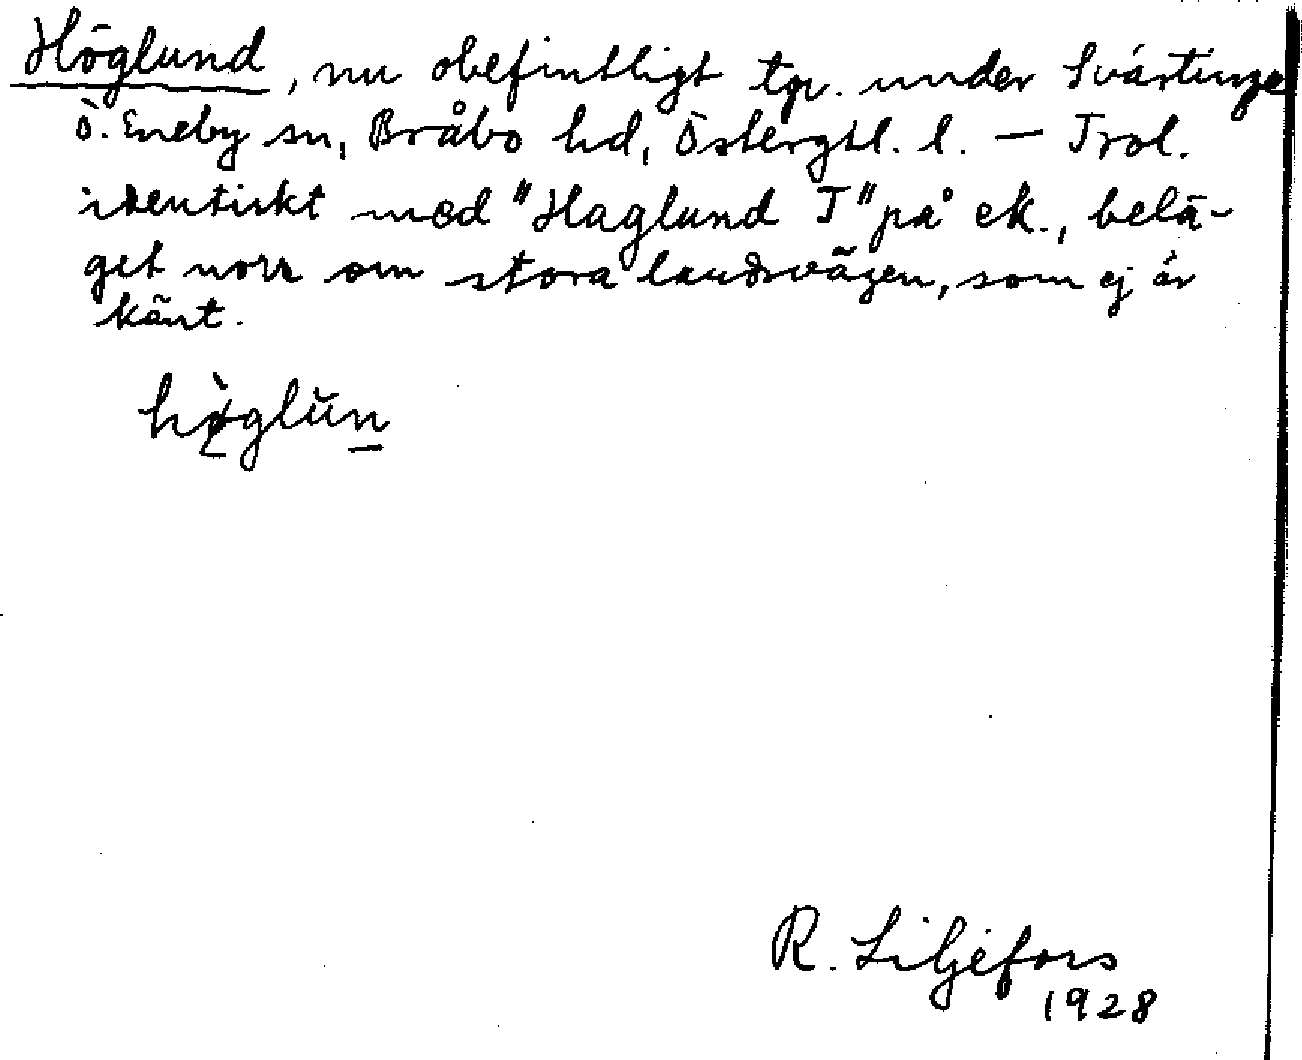 Höglund, nu obefintligt tp. under Svärtinge
Ö. Eneby sn, Bråbo hd, Östergtl. l. — Trol.
identiskt med "Haglund T" på ek., belä-
get norr om stora landsvägen, som ej är
känt.
R. Liljefors
1928